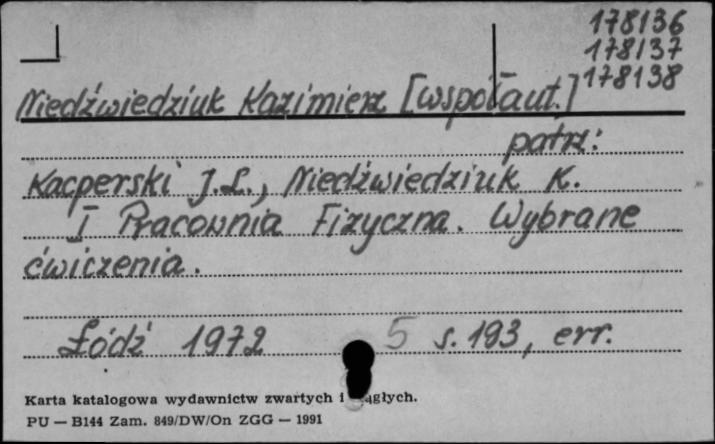 178136
178137
178138
Niedźwiedziuk Kazimierz [współaut.]
patrz:
Kacperski J.L., Niedźwiedziuk K.
I Pracownia Fizyczna. Wybrane
ćwiczenia.
Łódź 1972 5 s. 193, err.
Karta katalogowa wydawnictw zwartych i
PU — B144 Zam. 849/DW/On ZGG — 1991